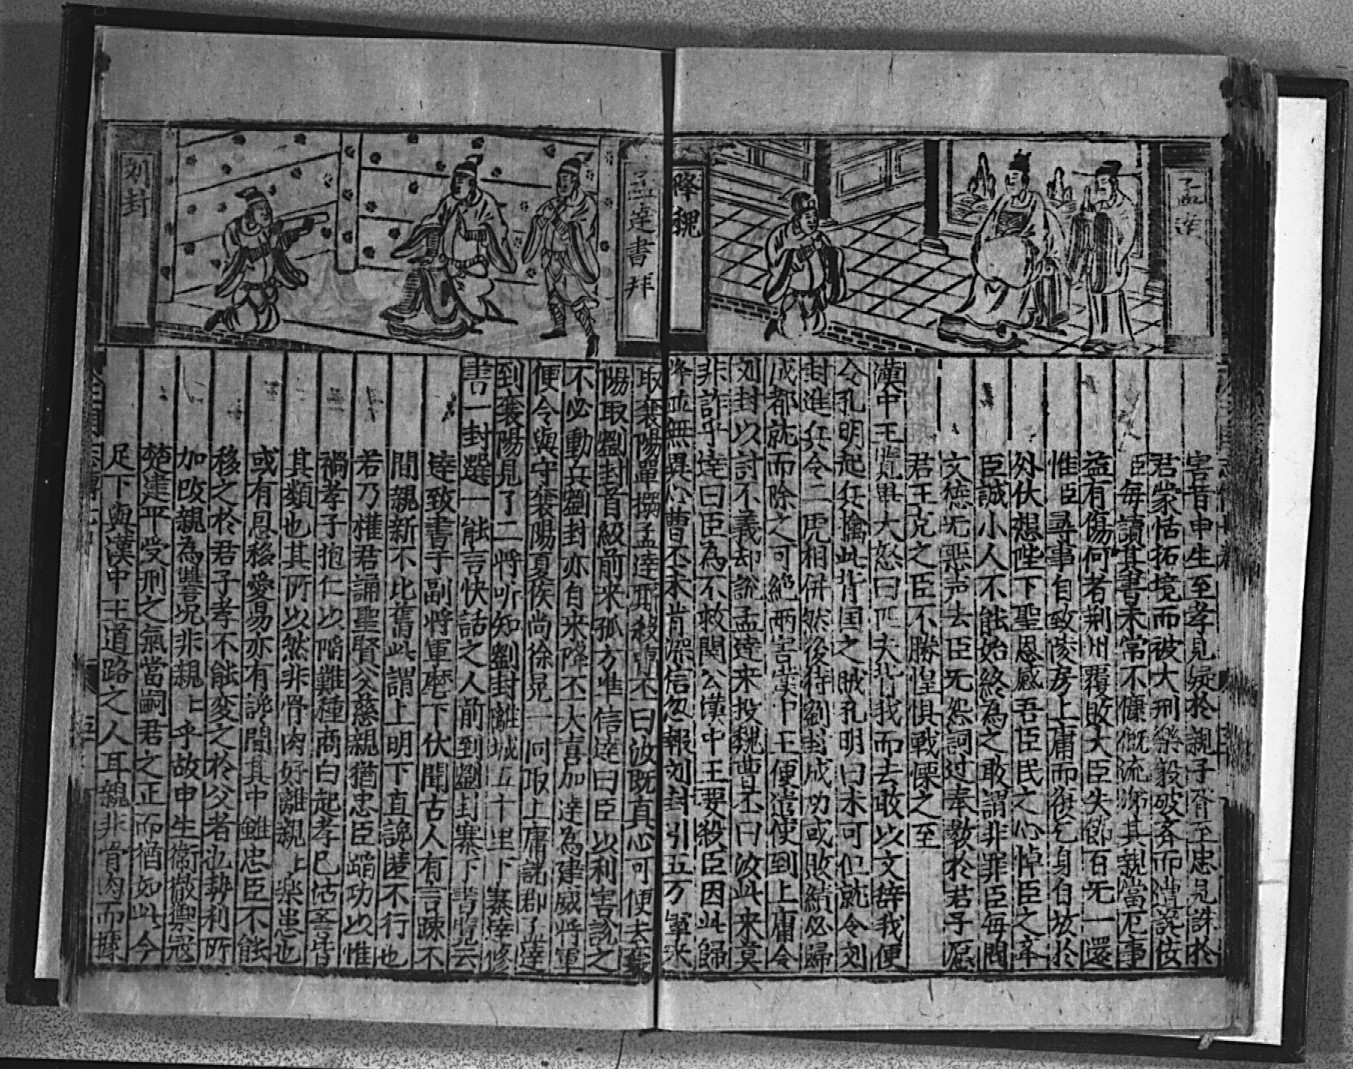 孟達
降魏
害昔申生至孝見疑於親子胥至忠見誅於
君蒙恬拓境而被大刑樂毅破齊而遭䜛佞
臣每讀其書未常不慷慨流涕其親當厄事
益有傷何者荆州覆敗大臣失節百无一還
惟臣尋事自致陵房上庸而復乞身自放於
外伏想陛下聖恩感吾臣民之心悼臣之卒
臣誠小人不能始終為之敢謂非罪臣每聞
交絶无惡声去臣无怨詞过奉教於君子愿
君王免之臣不勝惶惧戰慄之至
漢中王覧畢大怒曰匹夫背我而去敢以文辞我便
令孔明起兵擒此背国之賊孔明曰未可但就令刘
封進兵令二虎相併然後待劉封成功或敗績必歸
成都就而除之可絶两害漢中王便遣使到上庸令
刘封以討不義却說孟達来投魏曹丕曰汝此来莫
非詐乎達曰臣為不救関公漢中王要殺臣因此歸
降並無異心曹丕未肯深信忽報刘封引五万軍来
孟達書拜
刘封
取襄陽單搦孟達厮殺曹丕曰汝既真心可便去襄
陽取劉封首級前来孤方准信達曰臣以利害說之
不必動兵劉封亦自来降丕大喜加達為建威將軍
便令與守襄陽夏侯尚徐晃一同取上庸諸郡了達
到襄陽見了二將听知劉封離城五十里下寨達修
書一封選一能言快話之人前到劉封寨下書曰云
達致書于副將軍麾下伏聞古人有言疎不
間親新不比舊此謂上明下直讒匿不行也
若乃權君誦聖賢父慈親猶忠臣蹈功以惟
禍孝子抱仁以陷難種商白起孝已恬吾皆
其類也其所以然非骨肉好離親上樂患也
或有恩移愛易亦有讒間其中雖忠臣不能
移之於君子孝不能変之於父者也勢利所
加改親為讐况非親上乎故申生衛撤禦寇
楚建平受刑之氣當嗣君之正而猶如此今
足下與漢中王道路之人耳親非骨肉而據